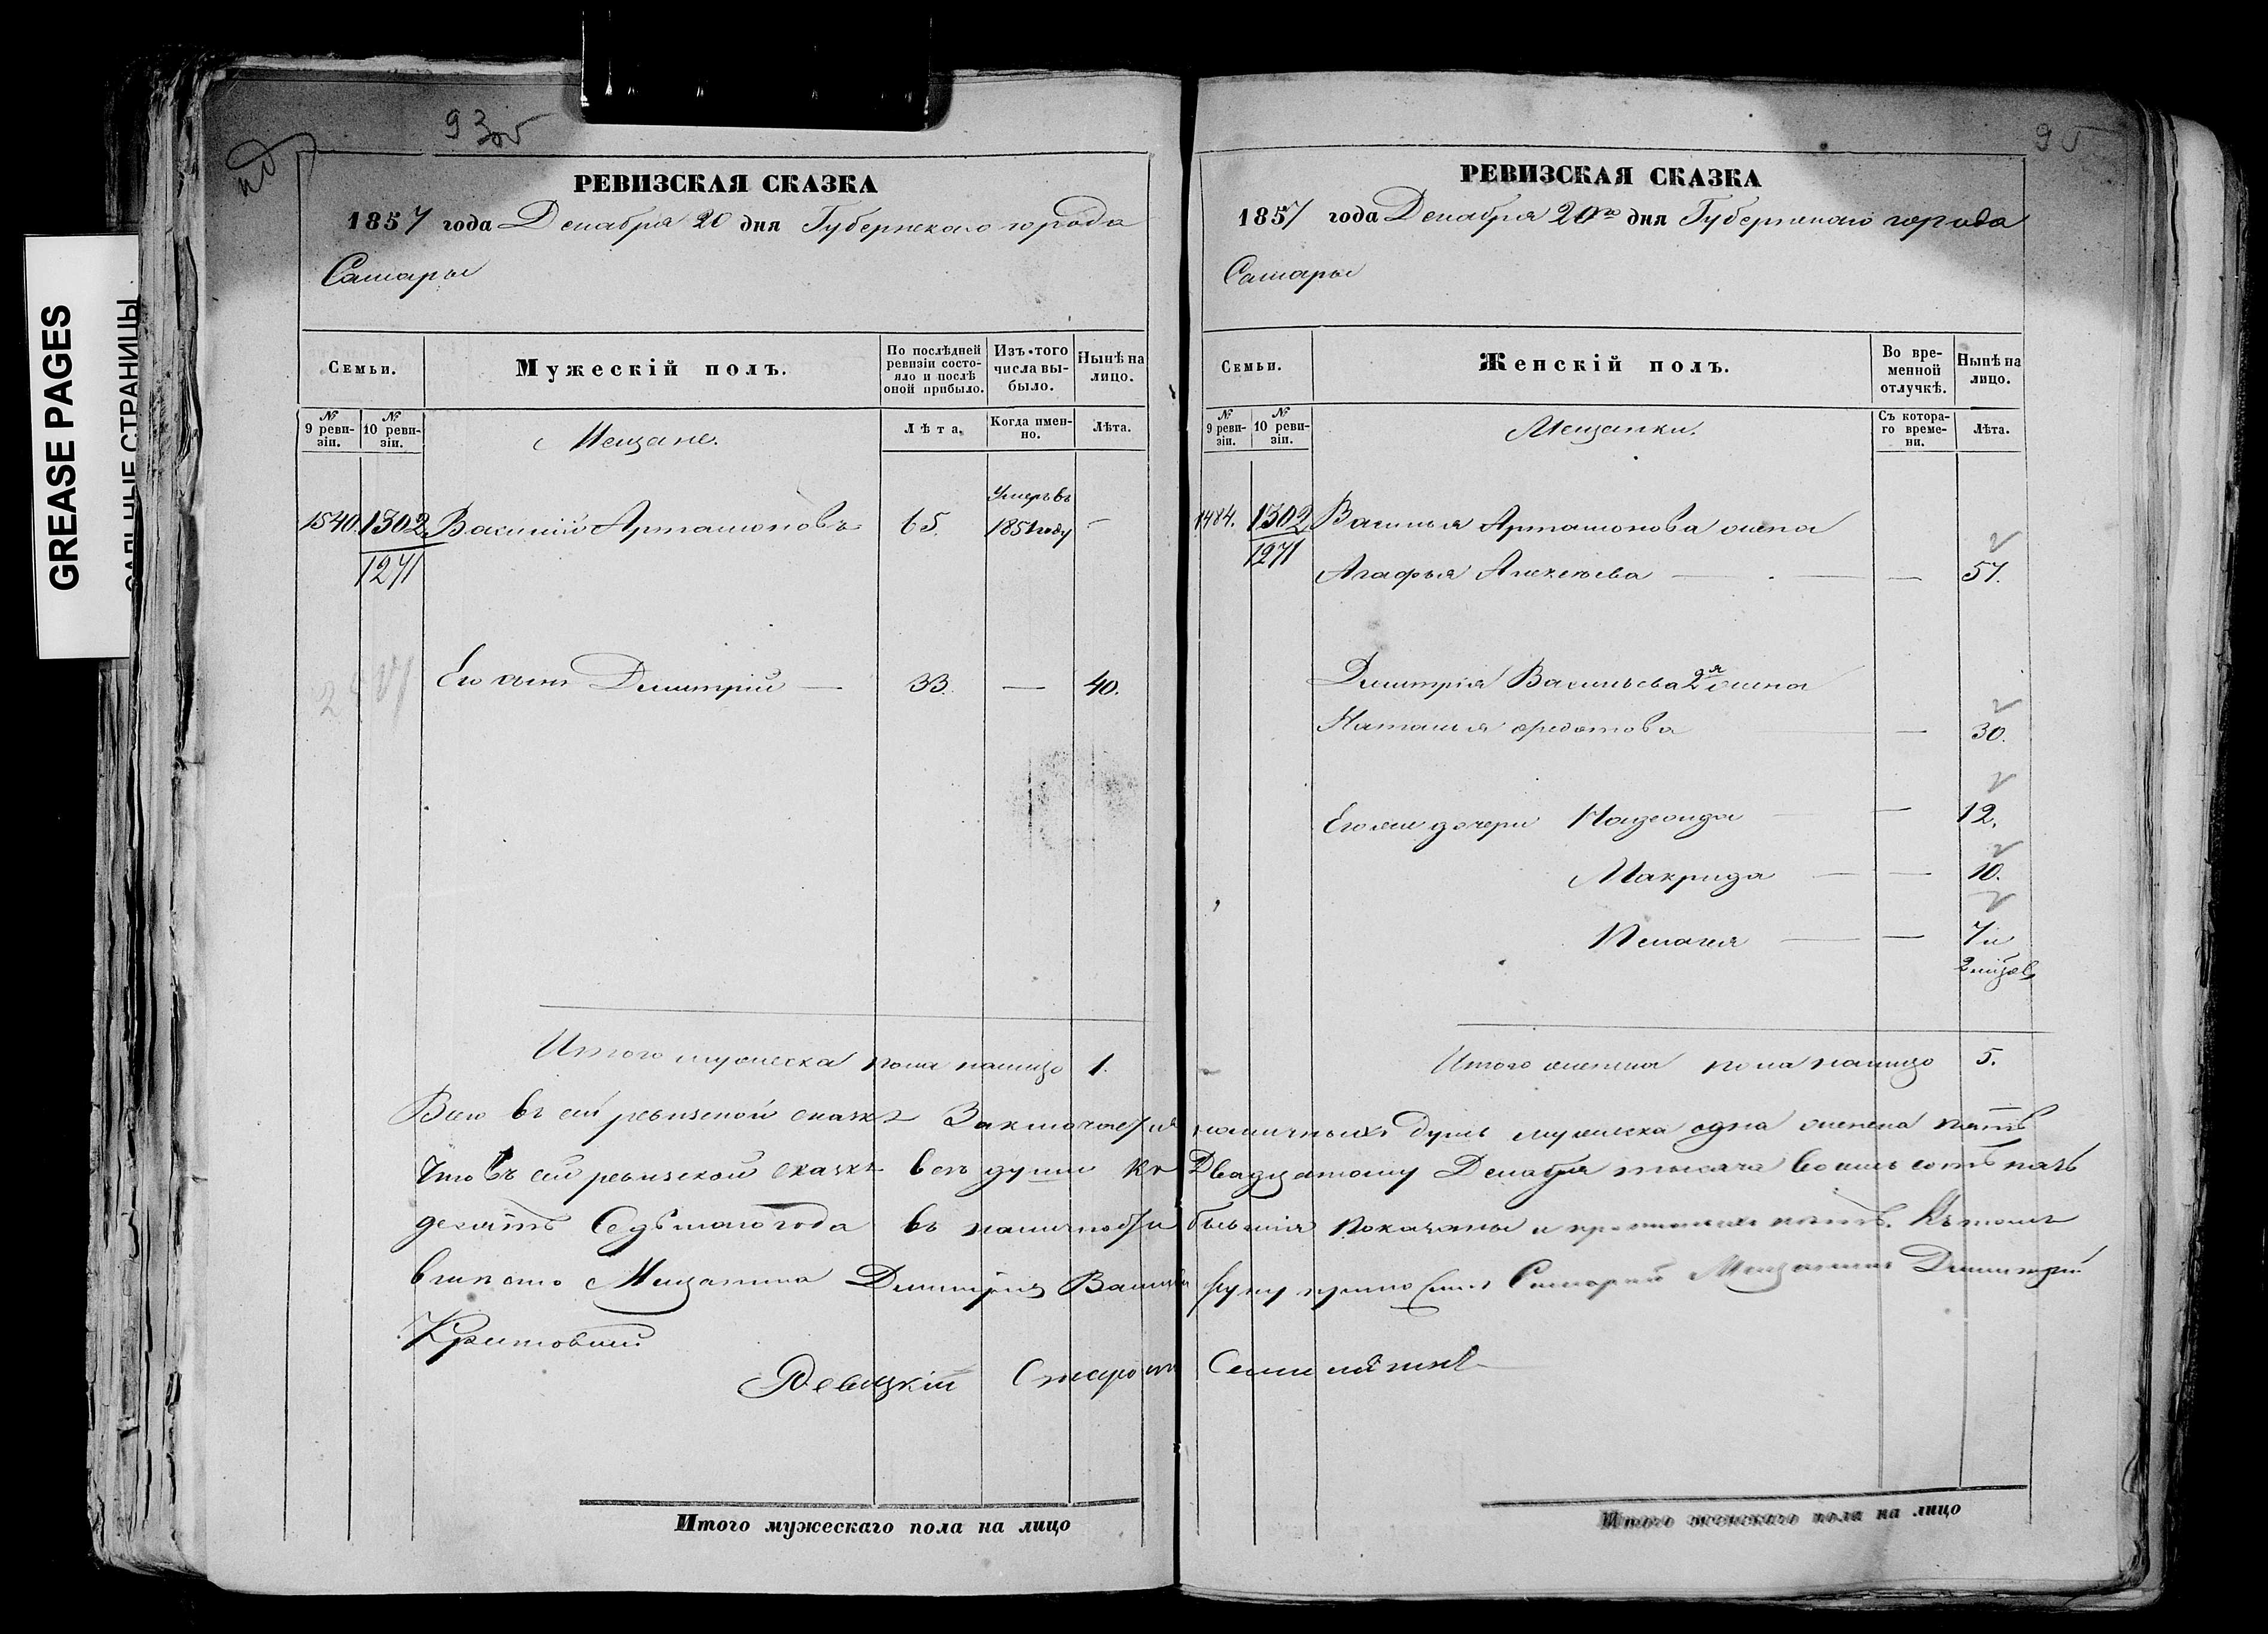 GREASE PAGES
САЛЬНЫЕ СТРАНИЦЫ
93об
РЕВИЗСКАЯ СКАЗКА
1857 года Декабря 20 дня Губернскаго города
Самары
Семьи.
Мужескій полъ.
По послѣдней ревизіи состояло и послѣ оной прибыло.
Изъ того числа выбыло.
Нынѣ на лицо.
№ 9 ревизіи.
№ 10 ревизіи.
Мещане.
Лѣта.
Когда именно.
Лѣта.
Умеръ въ
1540. 1302 Василий Артамоновъ 65. 1851 году -
1271
Его сынъ Димитрій — 33. — 40.
Итого мужеска пола налицо 1.
РЕВИЗСКАЯ СКАЗКА
1857 года Декабря 20го дня Губернскаго города
Самары
Семьи.
Женскій полъ.
Во временной отлучкѣ.
Нынѣ на лицо.
№ 9 ревизіи.
№ 10 ревизіи.
Мещанки.
Съ котораго времени.
Лѣта.
1484. 1302 Василья Артамонова жена
1271
Агафья Алексѣева — — 57.
Димитрія Васильева 2я жена
Наталья Федотова — 30.
Его же дочери Надежда — 12.
Макрида — — 10.
Пелагея — — 7 и
2 мѣсяц
Итого женска пола налицо 5.
Всего въ сей ревизской сказкѣ Заключается наличныхъ душъ мужеска одна женска пять
Что въ сей ревизской сказкѣ все души къ Двадцатому Декабря тысяча восемь сотъ пять
десятъ Седьмаго года въ наличности бывшія показаны и прописныхъ нѣтъ. Къ томъ
вместо Мещанина Димитрія Василь руку приложилъ Самарской Мещанинъ Димитрій
Ревизкій Староста
Итого мужескаго пола на лицо
Итого женскаго пола на лицо